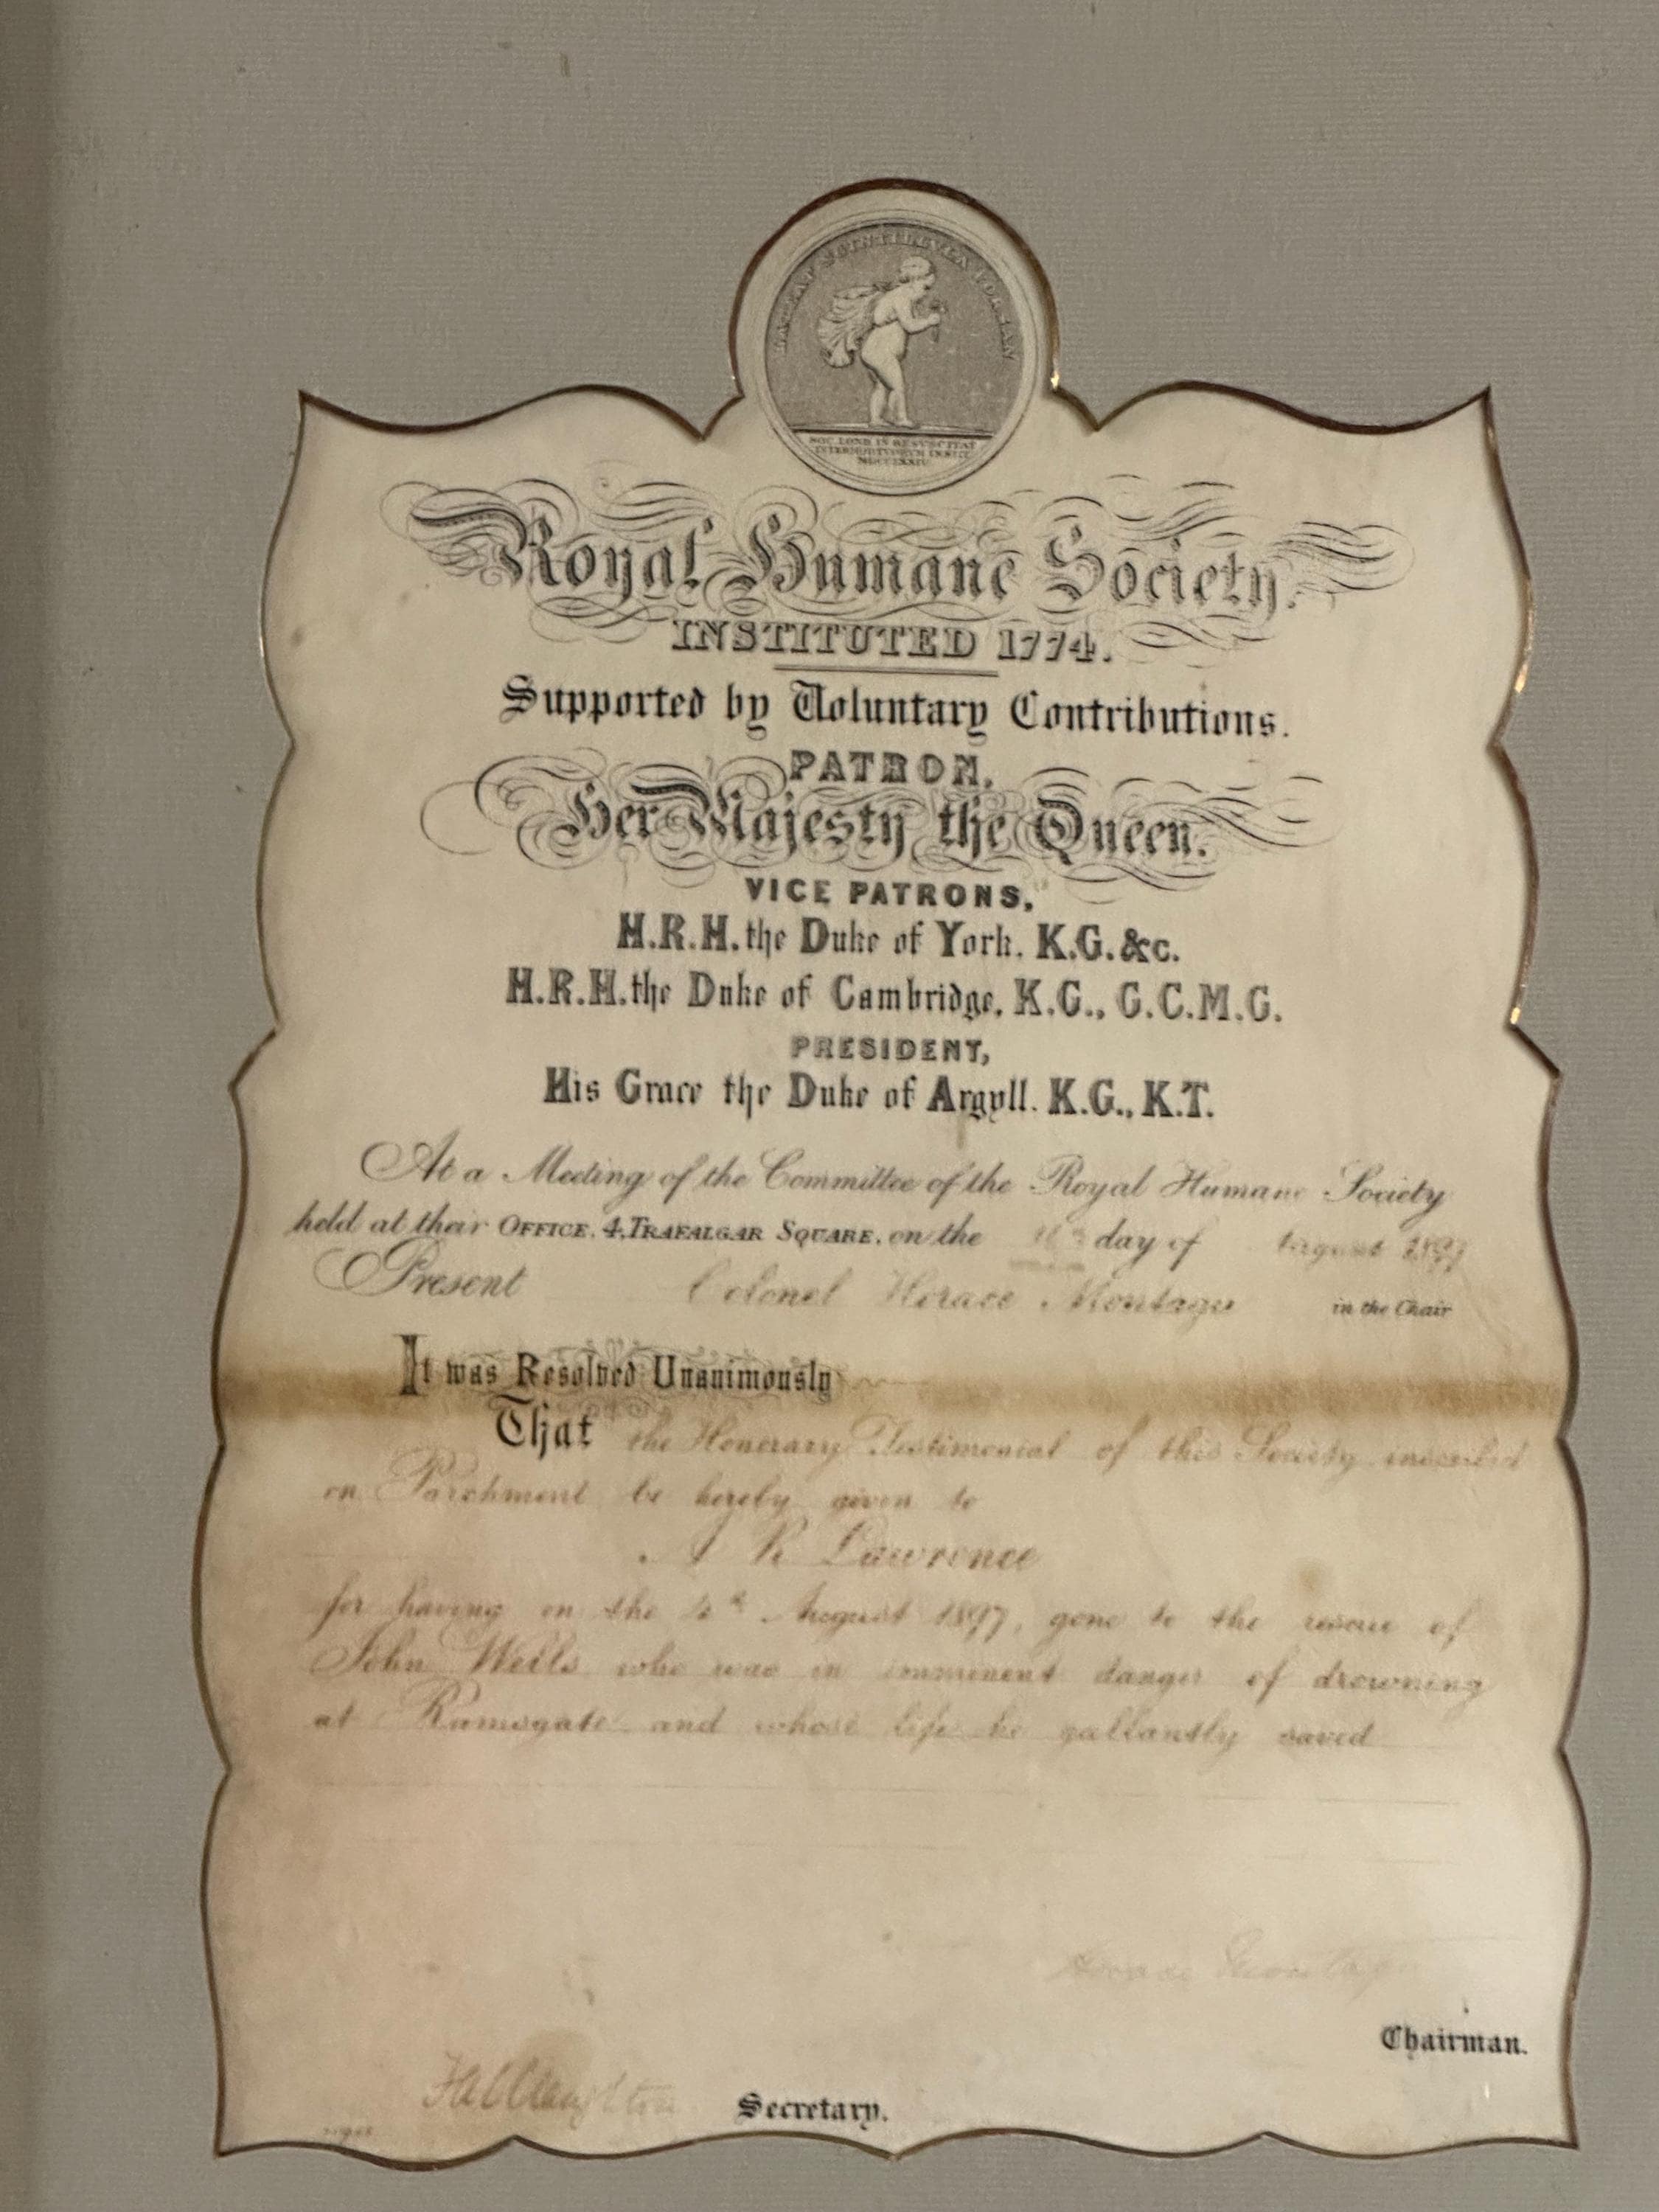 LATEAT SCINTILLVLA FORSAN
SOC. LOND. IN RESVSCITAT
INTERMORTVORVM INSTIT.
MDCCLXXIV
Royal Humane Society.
INSTITUTED 1774.
Supported by Voluntary Contributions.
PATRON,
Her Majesty the Queen.
VICE PATRONS,
H.R.H. the Duke of York. K.G. &c.
H.R.H. the Duke of Cambridge, K.G., G.C.M.G.
PRESIDENT,
His Grace the Duke of Argyll. K.G., K.T.
At a Meeting of the Committee of the Royal Humane Society
held at their OFFICE, 4, TRAFALGAR SQUARE, on the day of August 1897
Present Colonel Horace Montagu in the Chair
It was Resolved Unanimously
That the Honorary Testimonial of this Society inscribed
on Parchment be hereby given to
A R Lawrence
for having on the August 1897, gone to the rescue of
John Wells who was in imminent danger of drowning
at Ramsgate and whose life he gallantly saved
Horace Montagu
Chairman.
Claughton
Secretary.